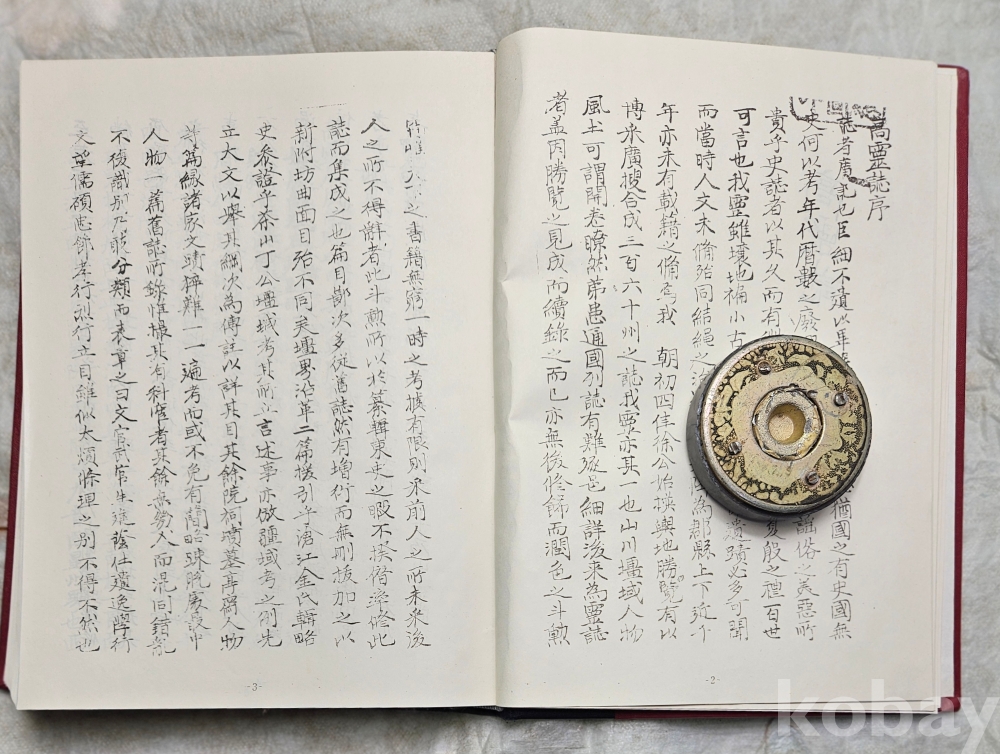 高靈誌序
誌者廣記也巨細不遺以年 猶國之有史國無
史何以考年代曆數之廢 謠俗之美惡所
貴乎史誌者以其久而有 夏殷之禮百世
可言也我靈雖壤地褊小古 遺蹟必多可聞
而當時人文未備殆同結繩之 為郡縣上下近千
年亦未有載籍之備焉我 朝初四佳徐公始撰輿地勝覽有以
博采廣搜合成三百六十州之誌我靈亦其一也山川疆域人物
風土可謂開卷瞭然弟患通國列誌有難弦邑細詳後來為靈誌
者盖因勝覽之見成而續錄之而已亦無後修餙而潤色之斗勲
之書籍無窮一時之考據有限則采前人之所未采後
人之所不得辭者此斗勲所以於纂輯東史之暇不揆僭率修此
誌而集成之也篇目鄭次多從舊誌然有增衍而無刪拔加之以
新附坊曲面目殆不同矣壇界沿革二篇援引乎滄江金氏輯略
史叅證乎茶山丁公壃域考其所立言述事亦倣疆域考之例先
立大文以舉其綱次為傳註以詳其目其餘院祠墳墓亭閣人物
諸篇緣諸家文蹟 難一一遍考而或不免有簡略疎脫處最中
人物一篇舊誌所錄惟撮其有科宦者其餘亦勞人而混同錯亂
不復識別乃 分類而表章之曰文官武官生進蔭仕遺逸學行
文望儒碩忠節孝行烈行立目雖似太煩條理之別不得不然也
-3-
-2-
kobay